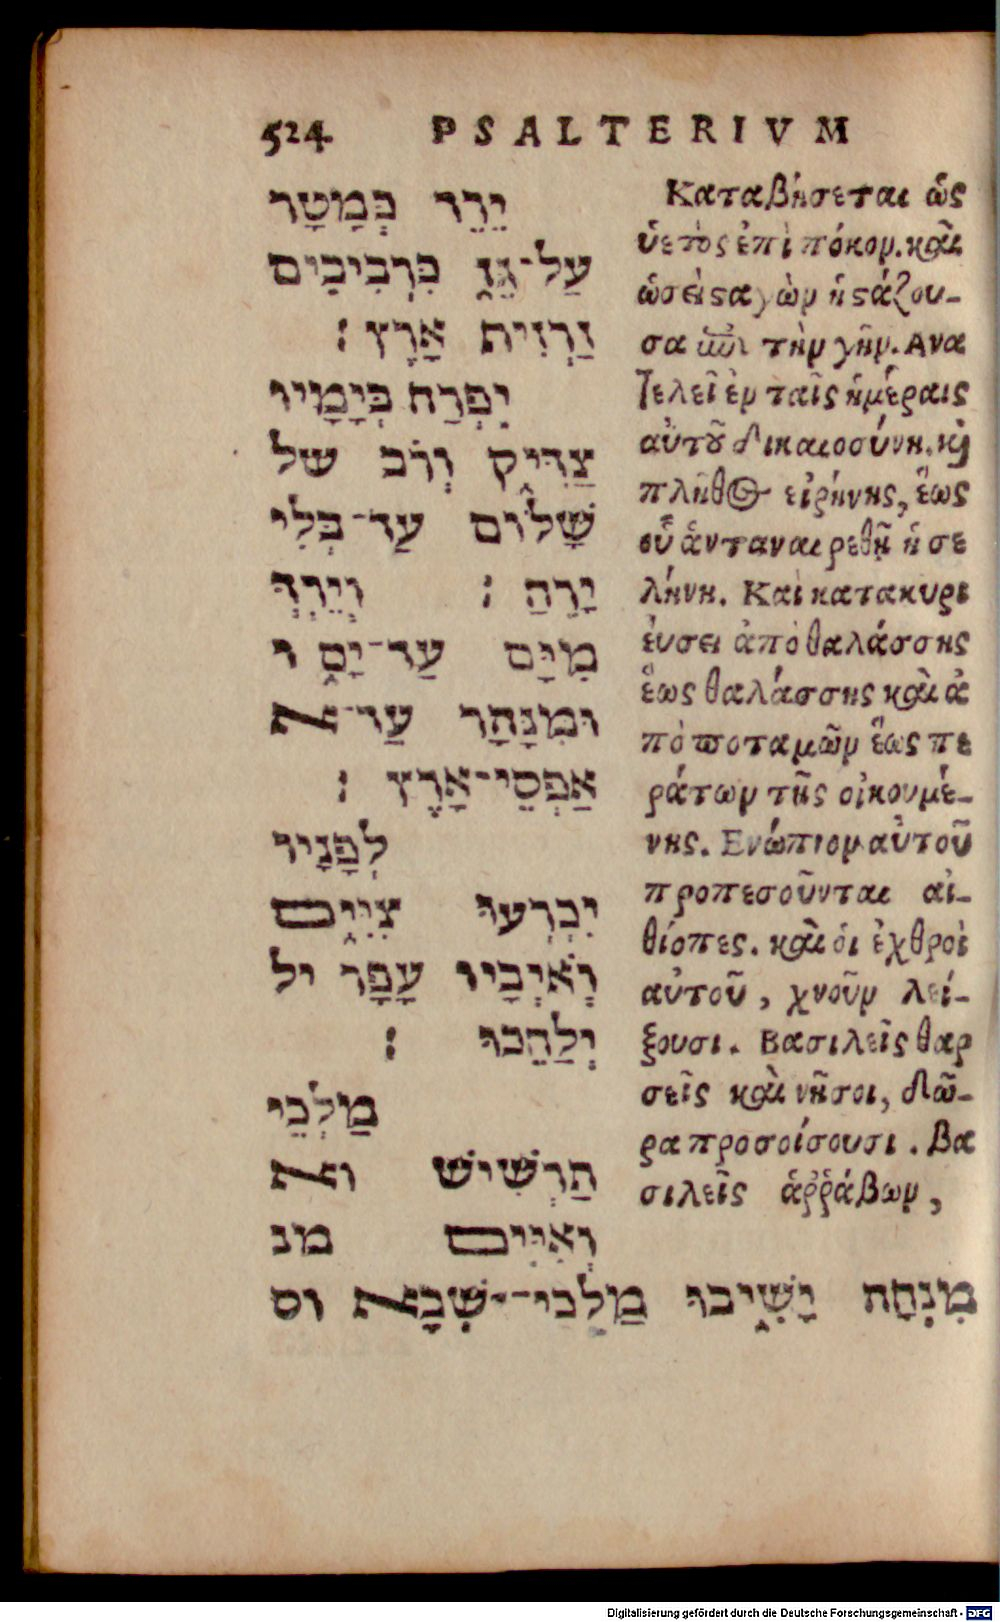 524 PSALTERIVM
יֵרֵד כְּמָטָר
עַל־גֵּז כִּרְבִיבִים
זַרְזִית אָרֶץ׃
יִפְרַח בְּיָמָיו
צַדִּיק וְרֹב של
שָׁלוֹם עַד־בְּלִי
יָרֵחַ׃ וְיֵרְדְּ
מִיָּם עַד־יָם ו
וּמִנָּהָר עַד־א
אַפְסֵי־אָרֶץ׃
לְפָנָיו
יִכְרְעוּ צִיִּים
וְאֹיְבָיו עָפָר יל
יְלַחֵכוּ׃
מַלְכֵי
תַרְשִׁישׁ וא
וְאִיִּים מנ
מִנְחָה יָשִׁיבוּ מַלְכֵי־שְׁבָא וס
Καταβήσεται ὡς
ὑετὸς ἐπὶ πόκον. καὶ
ὡσεὶ σταγὼν ἡ στάζου-
σα ἐπὶ τὴν γῆν. Ανα
τελεῖ ἐν ταῖς ἡμέραις
αὐτοῦ δικαιοσύνη. καὶ
πλῆθος εἰρήνης, ἕως
οὗ ἀνταναιρεθῇ ἡ σε
λήνη. Καὶ κατακυρι
εύσει ἀπὸ θαλάσσης
ἕως θαλάσσης καὶ ἀ
πὸ ποταμῶν ἕως πε
ράτων τῆς οἰκουμέ-
νης. Ενώπιον αὐτοῦ
προπεσοῦνται αἰ-
θίοπες. καὶ ὁι ἐχθροὶ
αὐτοῦ, χνοῦν λεί-
ξουσι. Βασιλεῖς θαρ
σεῖς καὶ νῆσοι, δῶ-
ρα προσοίσουσι. Βα
σιλεῖς ἀῤῥάβων,
Digitalisierung gefördert durch die Deutsche Forschungsgemeinschaft - DFG